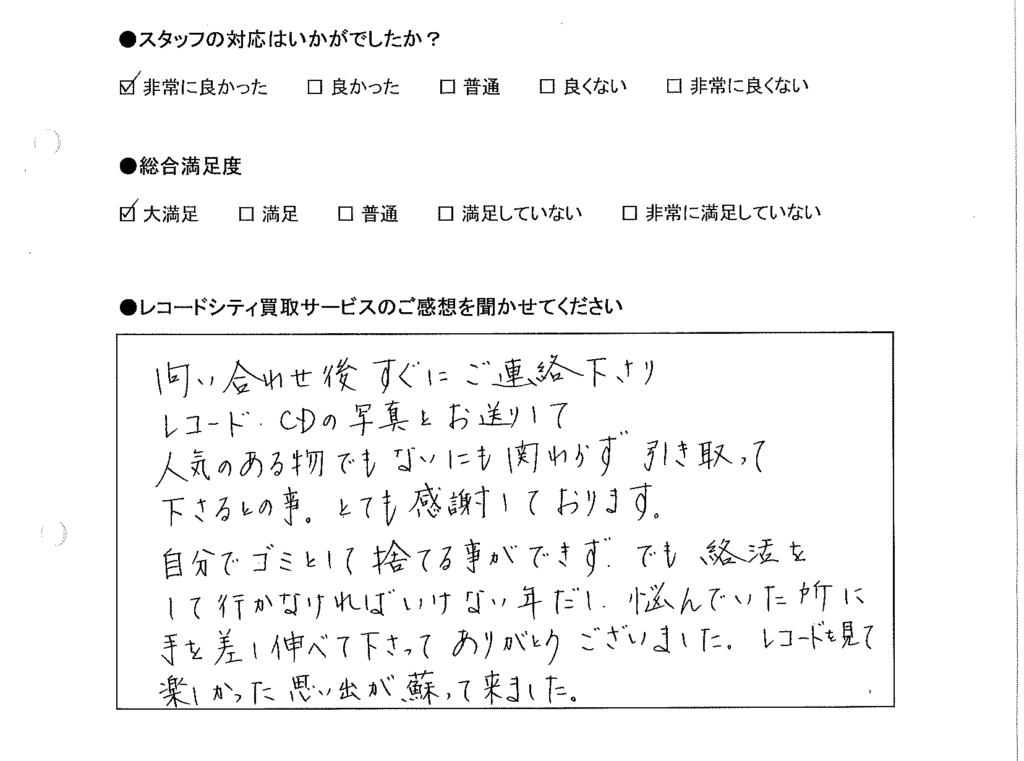 ●スタッフの対応はいかがでしたか？
☑ 非常に良かった □ 良かった □ 普通 □ 良くない □ 非常に良くない
●総合満足度
☑ 大満足 □ 満足 □ 普通 □ 満足していない □ 非常に満足していない
●レコードシティ買取サービスのご感想を聞かせてください
問い合わせ後すぐにご連絡下さり
レコード・CDの写真とお送りして
人気のある物でもないにも関わらず引き取って
下さるとの事。とても感謝しております。
自分でゴミとして捨てる事ができず、でも終活を
して行かなければいけない年だし、悩んでいた所に
手を差し伸べて下さってありがとうございました。レコードを見て
楽しかった思い出が蘇って来ました。